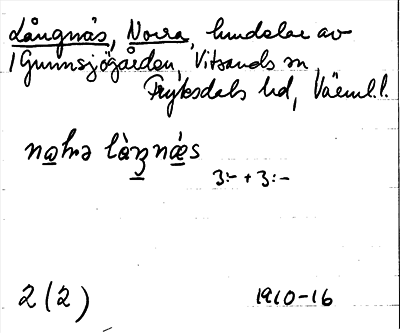 Långnäs, Norra, hundelar av
1 Gunnsjögården, Vitsands sn
Fryksdals hd, Värml.l.
lȧŋnǽs
3:- + 3:-
2 (2)
1910-16